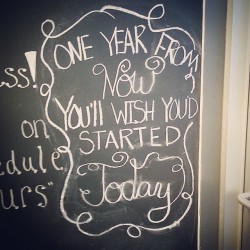 ss!
on
edule
urs"
ONE YEAR FROM
Now
YOU'LL WISH YOU'D
STARTED
Today